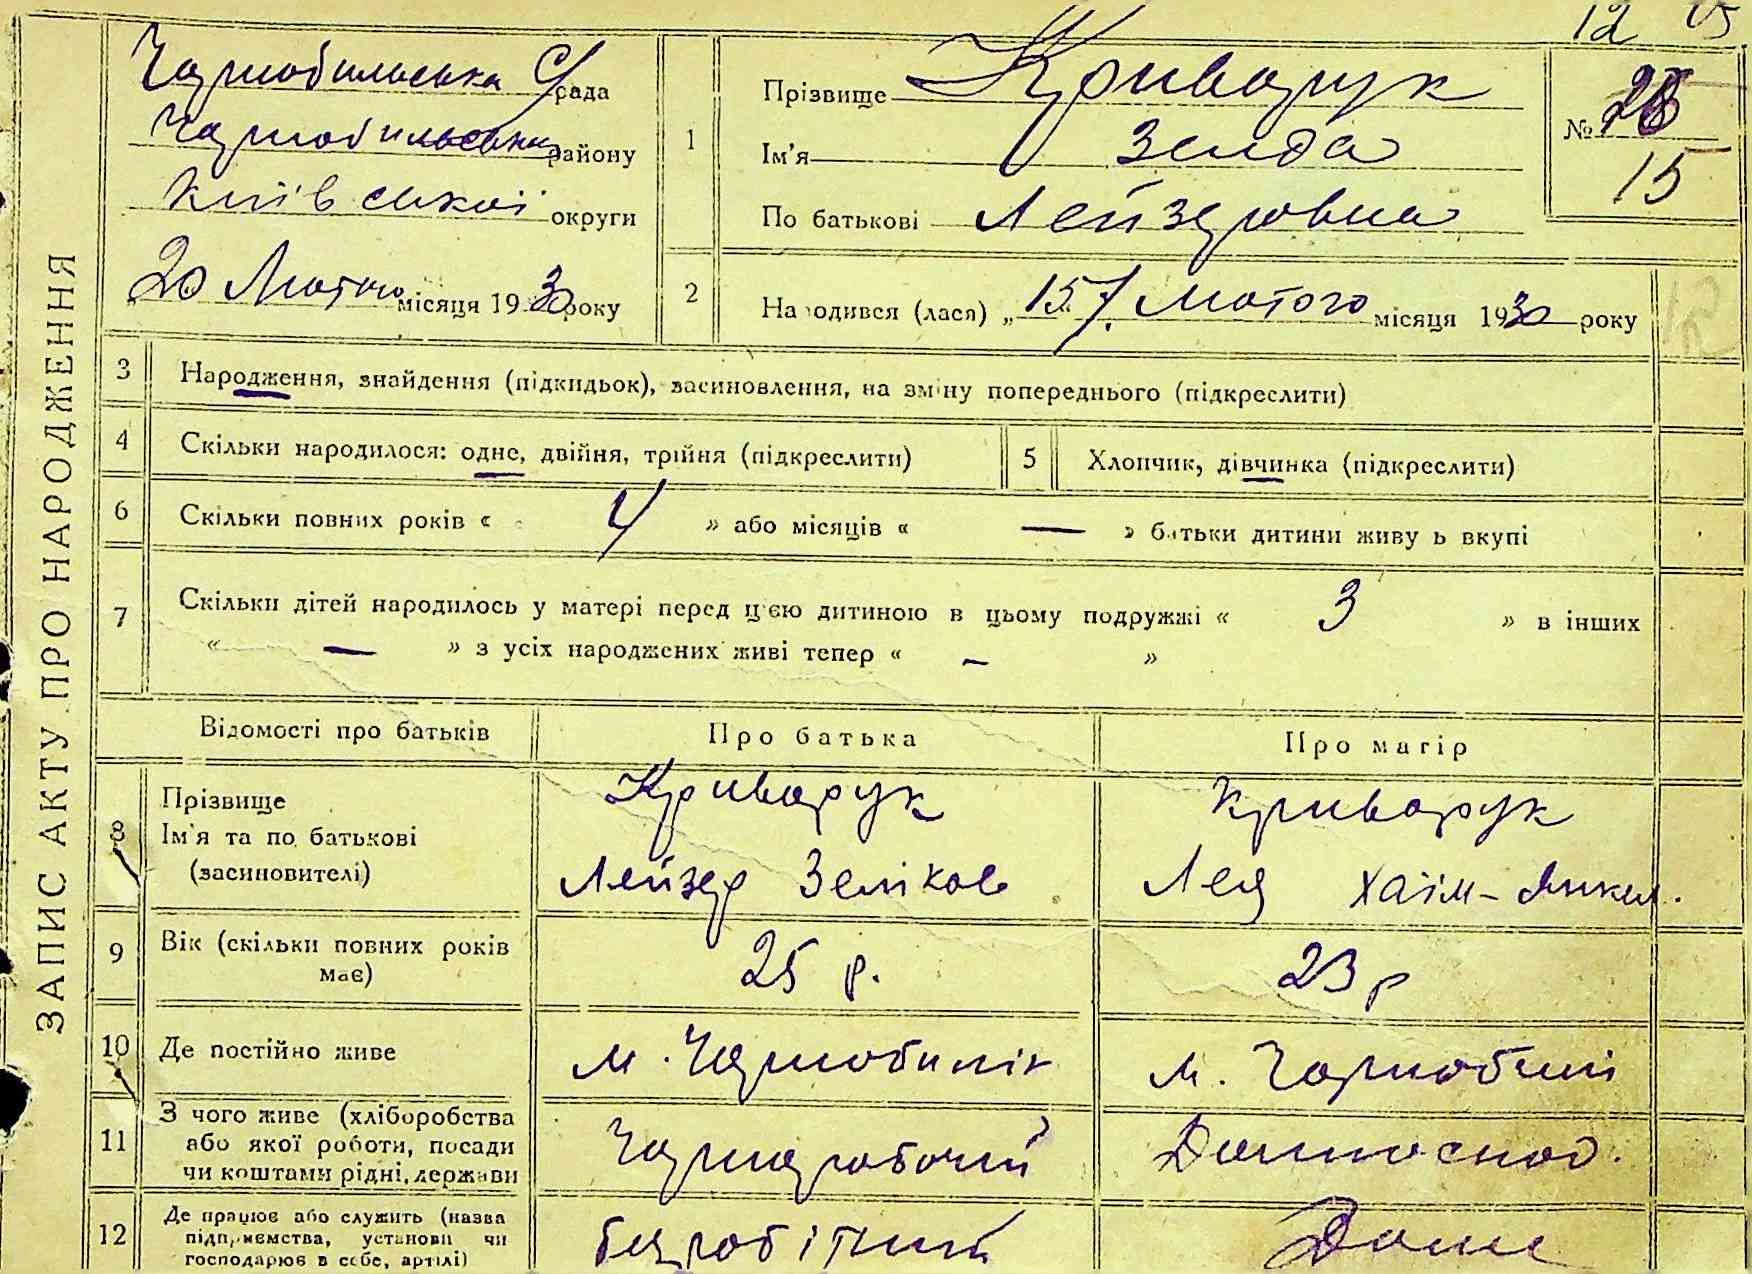 12
ЗАПИС АКТУ ПРО НАРОДЖЕННЯ
Чорнобильська С/рада
Чорнобильськ району
Київської округи
„20 Лютого місяця 1930 року
1
Прізвище Криворук
Ім'я Зелда
По батькові Лейзеровна
№
15
2
Народився (лася) „15/ Лютого місяця 1930 року
3
Народження, знайдення (підкидьок), засиновлення, на зміну попереднього (підкреслити)
4
Скільки народилося: одне, двійня, трійня (підкреслити)
5
Хлопчик, дівчинка (підкреслити)
6
Скільки повних років « 4 » або місяців « — » батьки дитини живуть вкупі
7
Скільки дітей народилось у матері перед цією дитиною в цьому подружжі « 3 » в інших
« — » з усіх народжених живі тепер « – »
Відомості про батьків
Про батька
Про матір
8
Прізвище
Ім'я та по батькові
(засиновителі)
Криворук
Лейзер Зеліков
Криворук
Лея Хаїм-Янкел.
9
Вік (скільки повних років
має)
25 р.
23 р
10
Де постійно живе
м. Чорнобилік
м. Чорнобилі
11
З чого живе (хліборобства
або якої роботи, посади
чи коштами рідні, держави
Чорноробочий
Домогоспод.
12
Де працює або служить (назва
підприємства, установи чи
господарює в себе, артілі)
безробітний
Дома